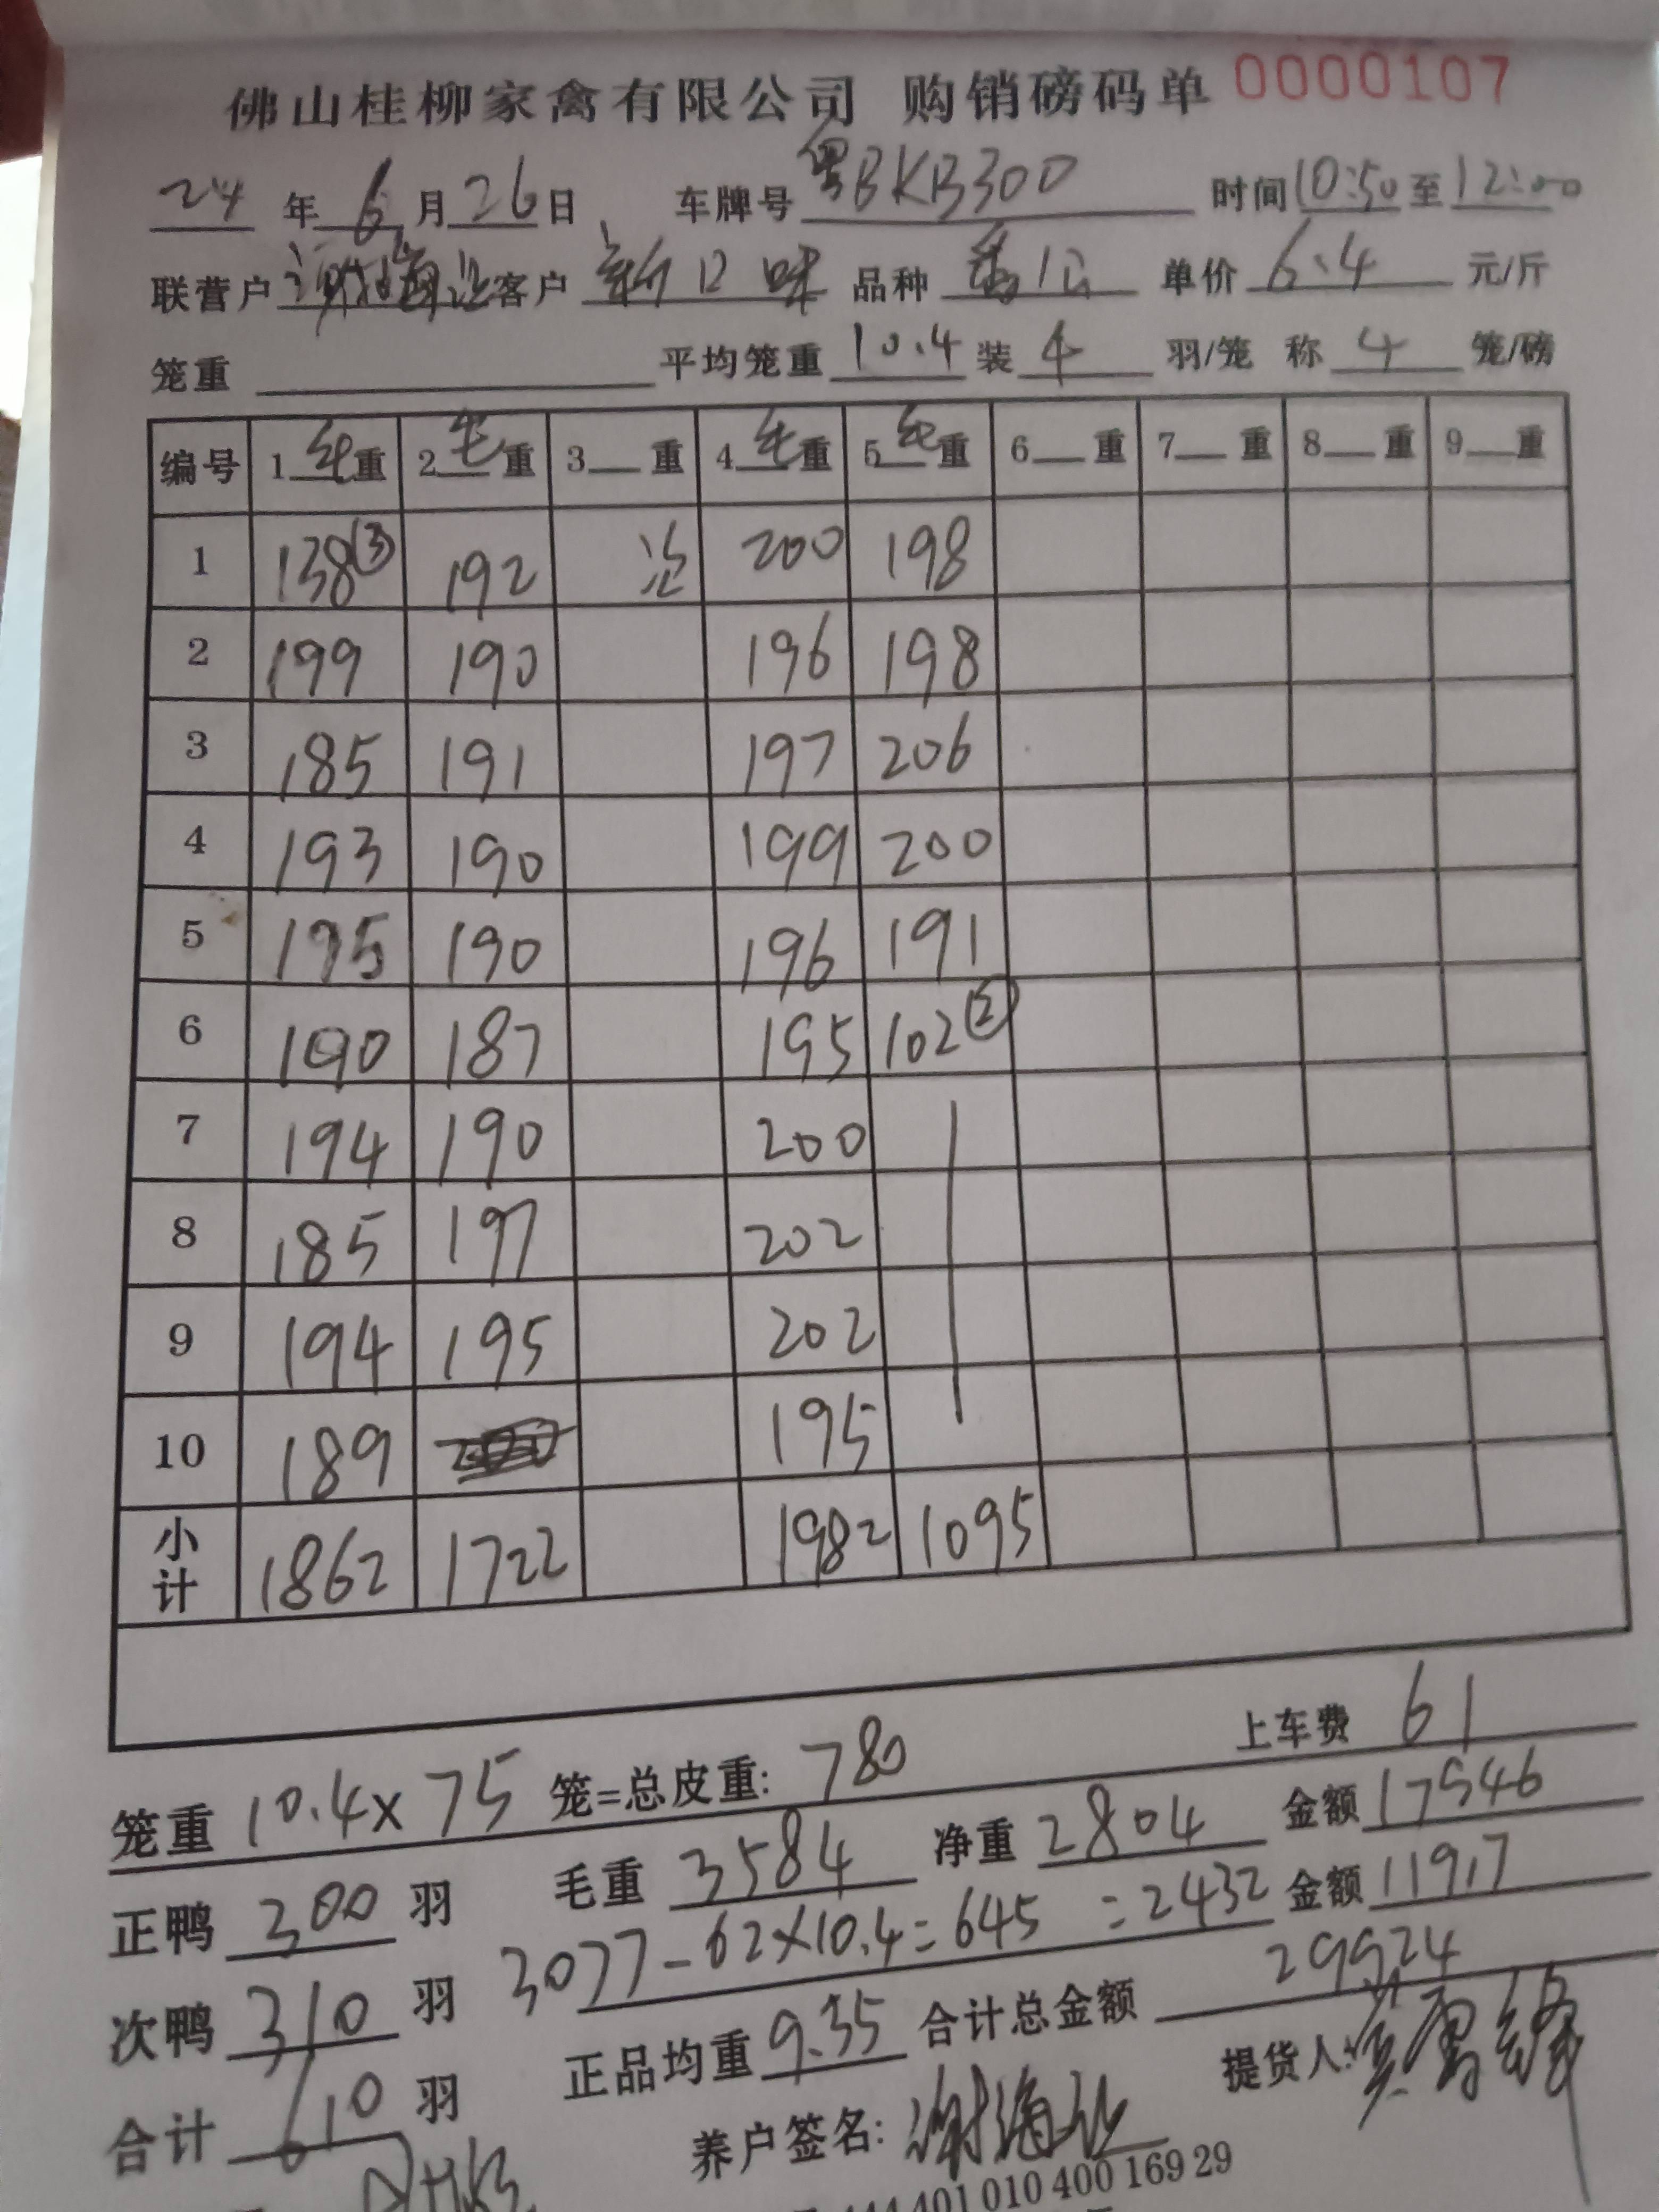 佛山桂柳家禽有限公司 购销磅码单 0000107
24年6月26日 车牌号 粤BKB300 时间10:50至12:00
联营户 客户 新口味 品种 番公 单价 6.4 元/斤
笼重 平均笼重 10.4 装 4 羽/笼 称 4 笼/磅
编号 1毛重 2毛重 3 重 4毛重 5毛重 6 重 7 重 8 重 9 重
1 138③ 192 200 198
2 199 190 196 198
3 185 191 197 206
4 193 190 199 200
5 195 190 196 191
6 190 187 195 102②
7 194 190 200
8 185 197 202
9 194 195 202
10 189 195
小计 1862 1722 1982 1095
笼重 10.4×75 笼=总皮重: 780 上车费 61
正鸭 300 羽 毛重 3584 净重 2804 金额 17946
次鸭 310 羽 3077-62×10.4=645 =2432 金额 11917
合计 610 羽 正品均重 9.35 合计总金额 29924
养户签名: 提货人:
401 010 400 169 29